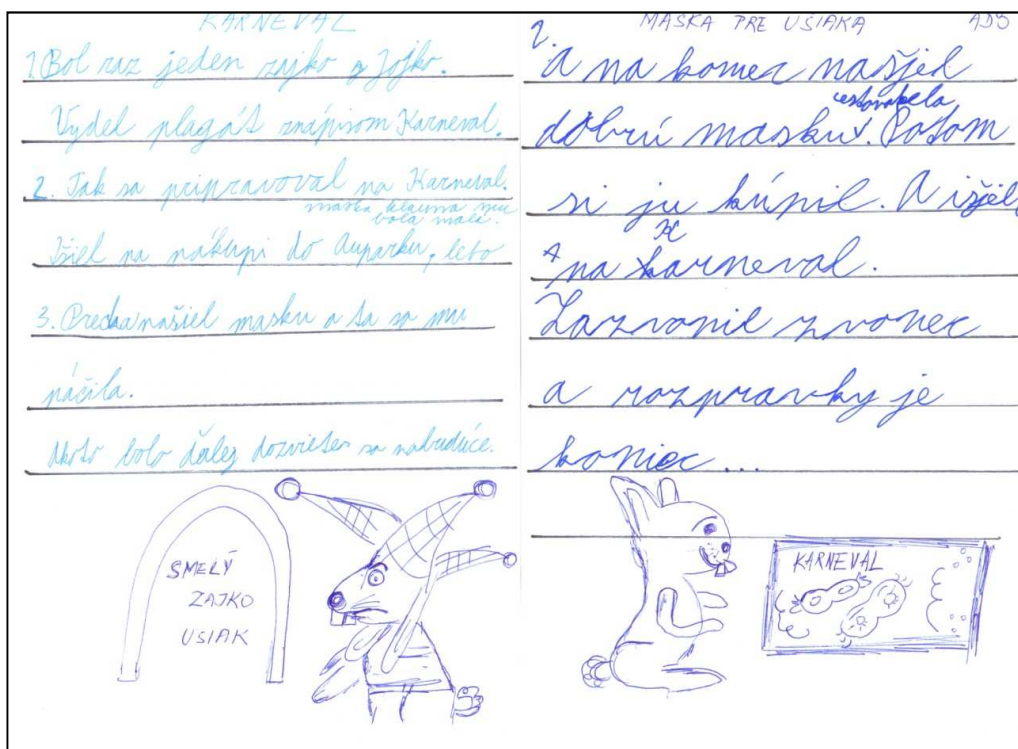 KARNEVAL
1. Bol raz jeden zajko z Jojko.
Vydel plagát znápisom Karneval.
2. Tak sa pripravoval na Karneval.
maska klauna mu
bola malá.
Išiel na nákupi do Auparku, lebo
3. Predsa našiel masku a ta sa mu
páčila.
Akoto bolo ďalej dozviete sa nabudúce.
SMELÝ
ZAJKO
USIAK
2. MASKA PRE UŠIAKA
A na komec našjel
cestovatela
dobrú masku. Potom
si ju kúpil. A išjel
na karneval.
Zazvonil zvonec
a rozpravky je
koniec...
KARNEVAL